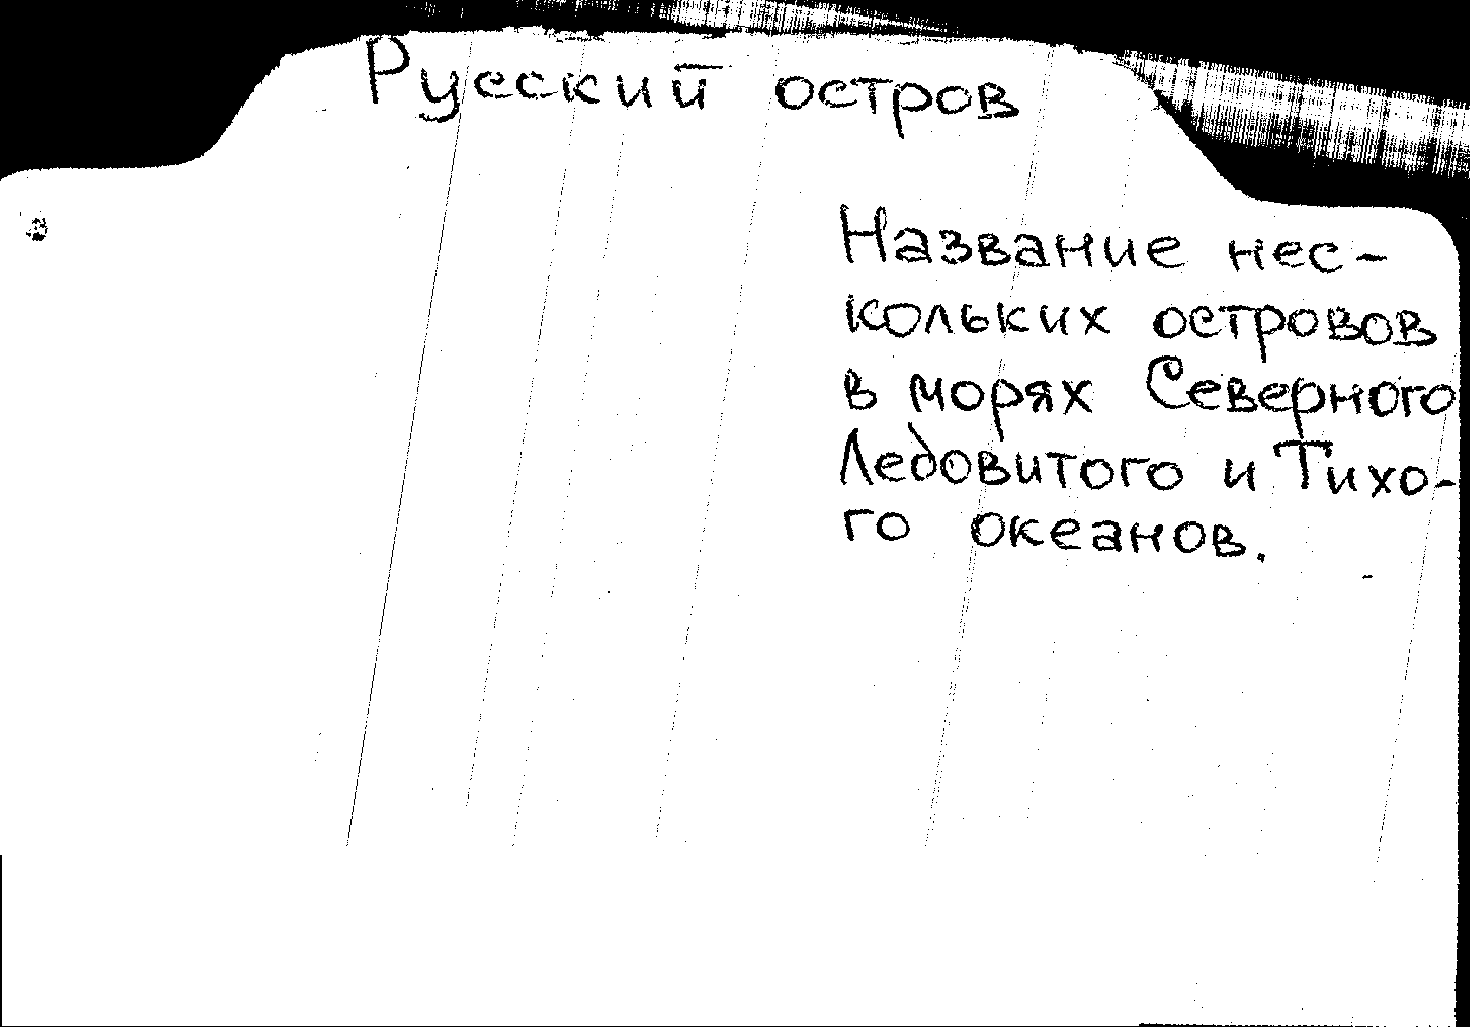 Русский остров
Название нес-
кольких островов
в морях Северного
Ледовитого и Тихо-
го океанов.